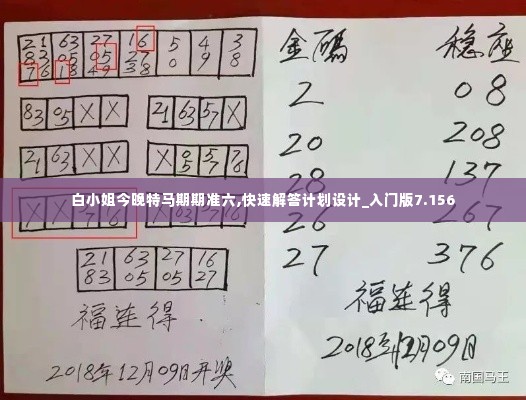 21 63 27 16 5 4 3
05 27 0 9 8
76 18 49 38
83 05 X X
21 63 57 X
21 63 X X
X 05 57 76
X X
21 63 27 16
83 05 05 27
福莲得.
2018年12月09日开奖
金碼 稳座
2 08
20 208
28 137
白小姐今晚特马期期准六,快速解答计划设计_入门版7.156
26 267
27 376
福莲得
2018年12月09日
南国马王